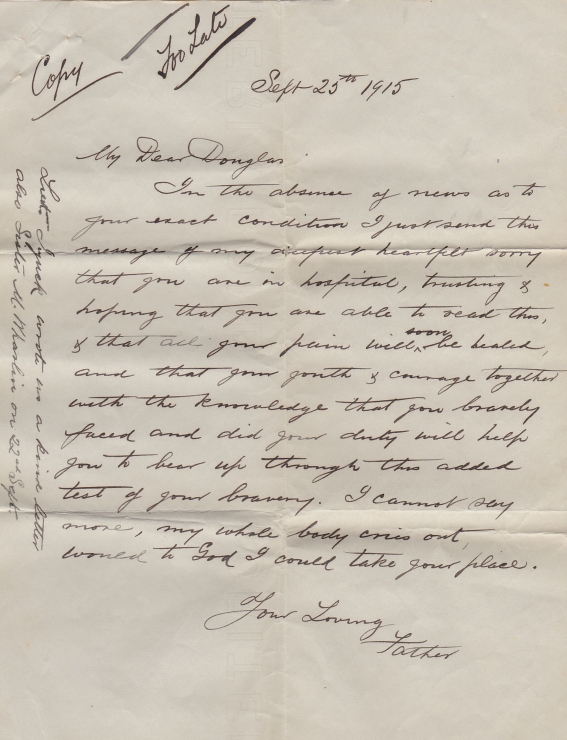 Copy
Too Late
Sept 25th 1915
My Dear Douglas
In the absence of news as to
your exact condition I just send this
message of my deepest heartfelt sorry
that you are in hospital, trusting &
hoping that you are able to read this,
& that all your pain will soon be healed,
and that your youth & courage together
with the knowledge that you bravely
faced and did your duty will help
you to bear up through this added
test of your bravery. I cannot say
more, my whole body cries out,
would to God I could take your place.
Your Loving
Father
Lieut. Lynch wrote us a kind letter
also Sister M. on 22nd Sept